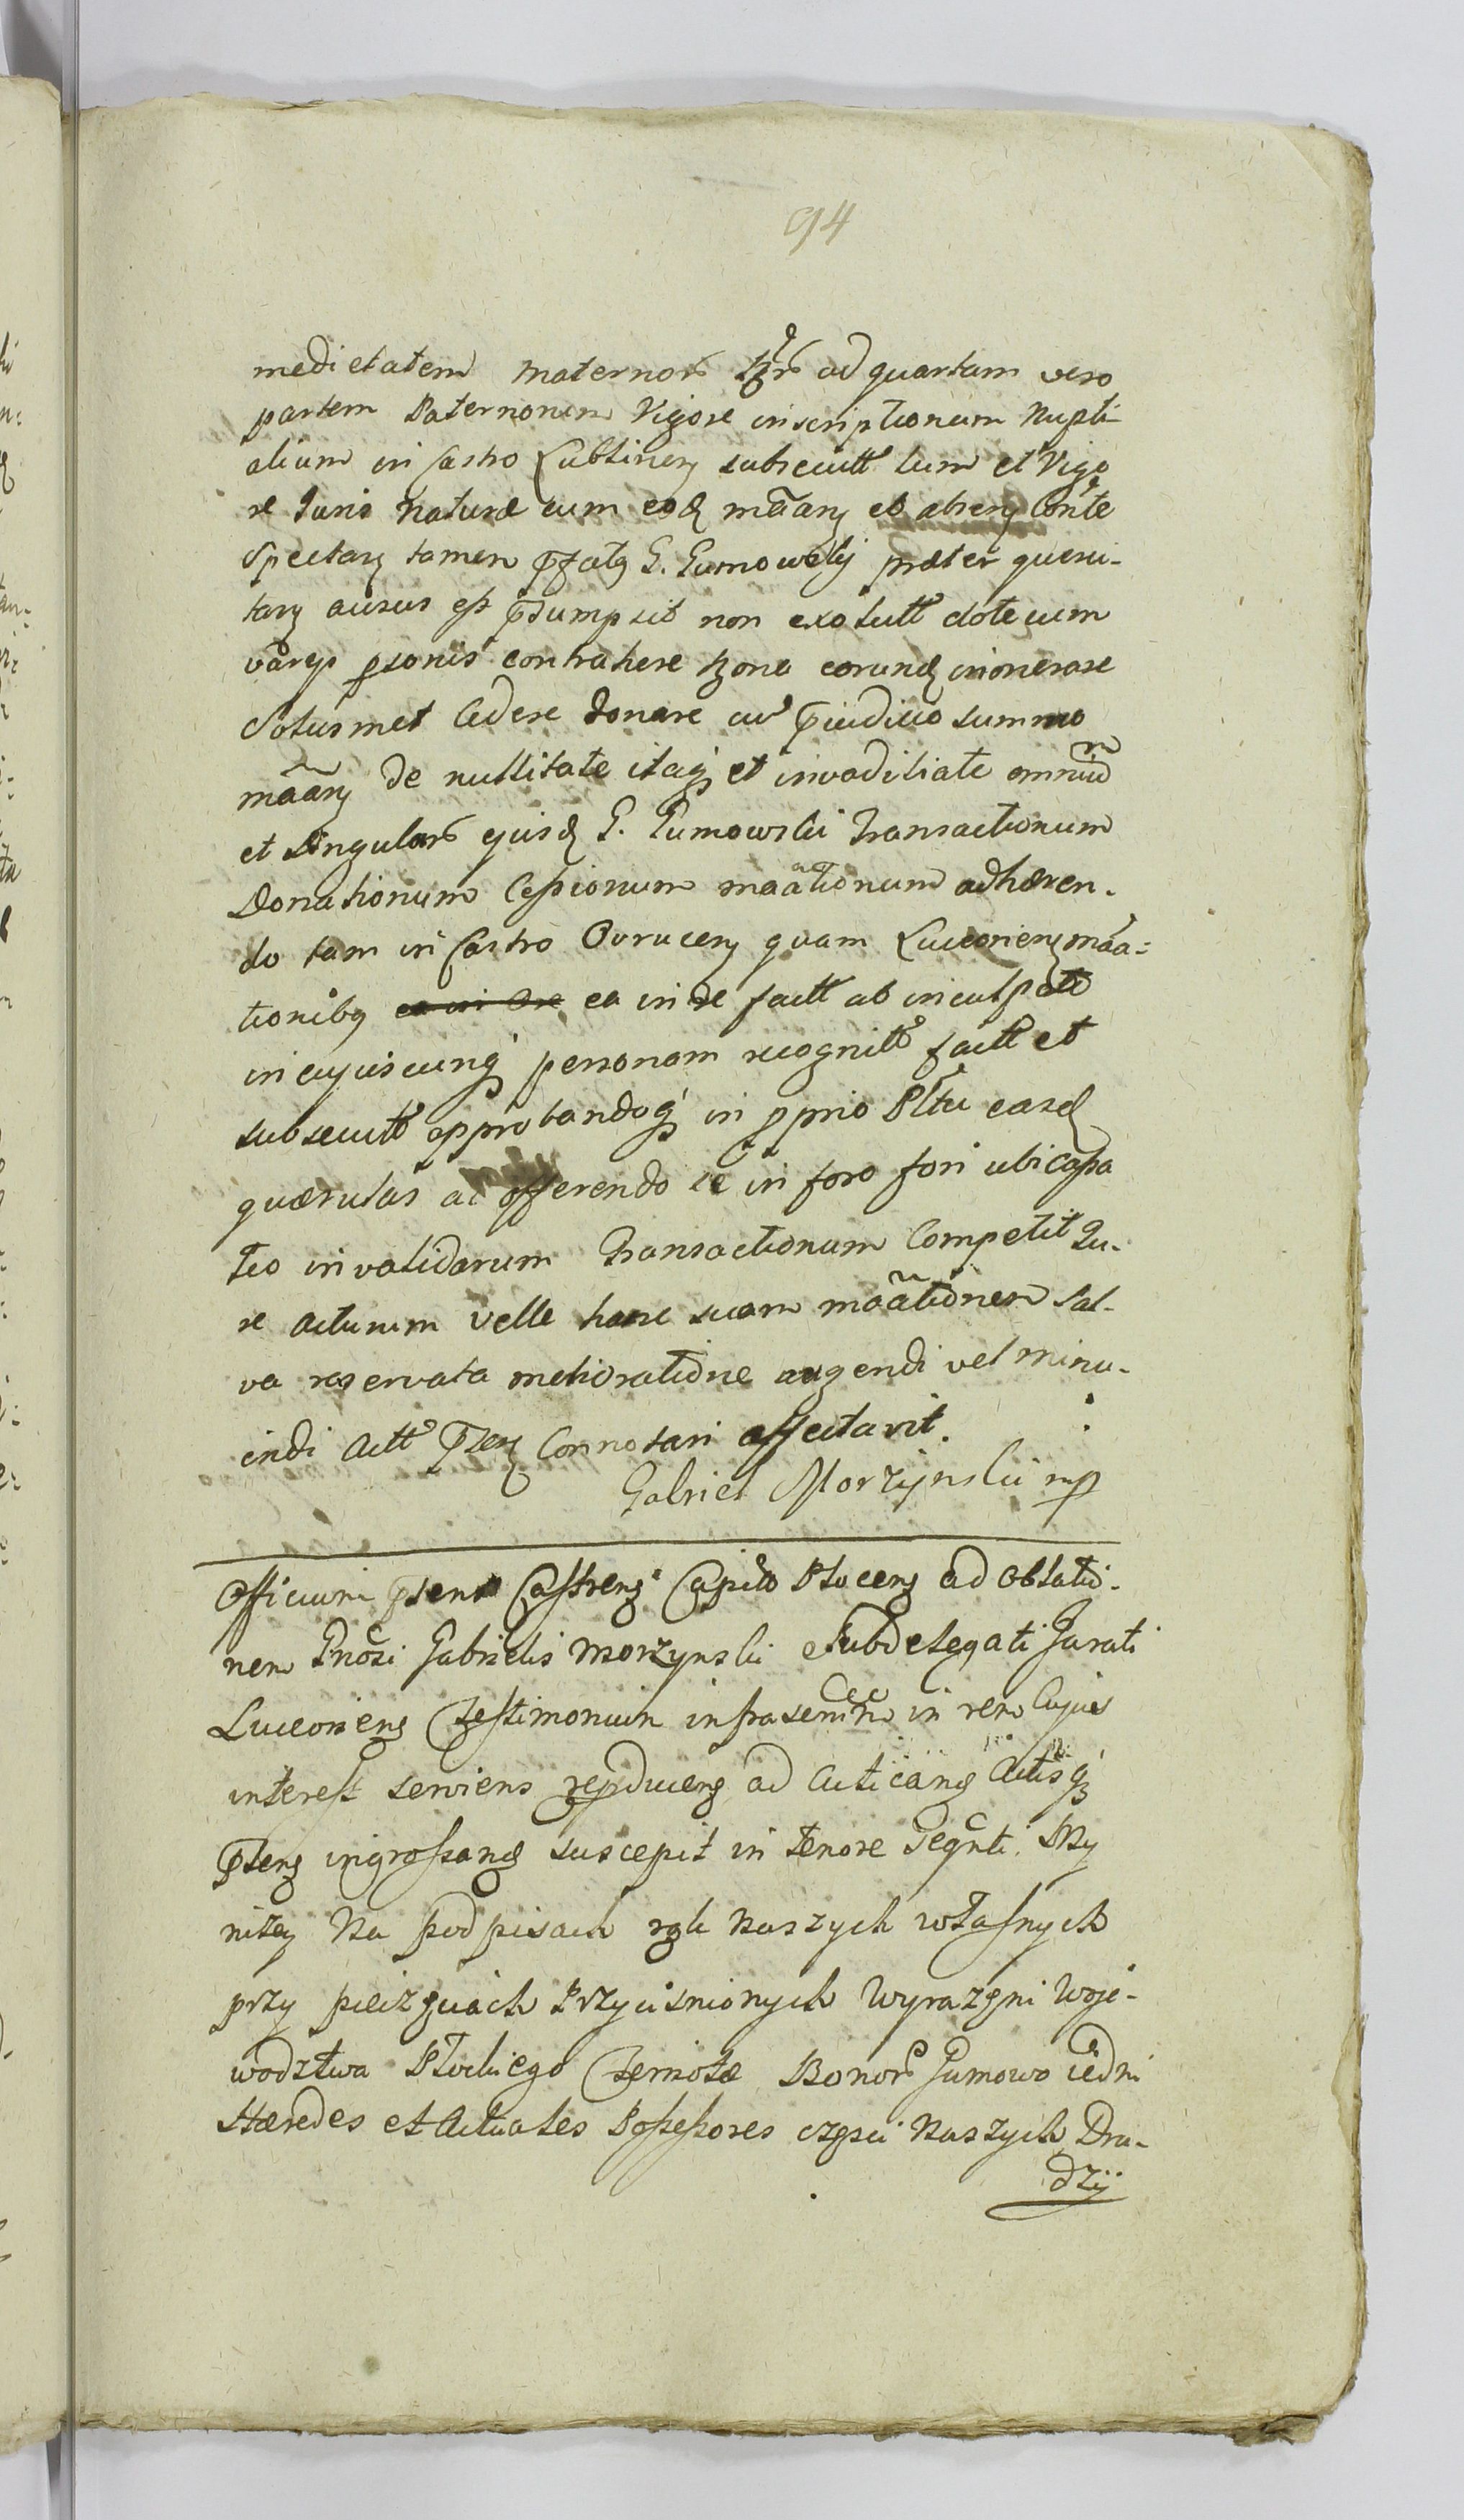 94
medietatem maternor ad quartam vero
partem Paternorum Vigore inscriptionum Nupti-
alium in Castro Lublinen subsecutt tum et Vigo
re Juris Naturæ cum eod mãan et absen Conte
Spectan tamen pfatg G. Gumowski præter queru-
tan ausus est psumpsit non exolutt dote cum
varijs psonis contrahere bona eorund inonerare
Solusmet Cedere Donare cu pjudicio summo
mãan de nullitate itaq et invadiliate omnium
et Singular ejusd G. Gumowski Transactionum
Donationum Cessionum maãtionum adhæren-
do tam in Castro Ovrucen quam Luceorien maa-
tionibg ea in re ea in re factt ab inculpato
in cujuscunq personam recognitt factt et
subsecutt approbandoq in pprio Pltu easd
quærulas ac offerendo se in foro fori ubi capa
Teo invalidarum Transactionum Competit Ju-
re acturum velle hanc suam maãtionem Sal-
va reservata melioratione augendi vel minu-
endi Actt psen Connotari affectavit.
Gabriel Morzynski mp
Officium psens Castrens Capile Plocens ad oblatio-
nem Gnosi Gabrielis Morzynski Subdelegati Jurati
Luceoriens Testimonium infrascrm in rem Cujus
interest serviens repducens ad Acticand Actisq
psens ingrossand suscepit in Tenore Seqnti. My
niżey Na podpisach rąk Naszych własnych
przy pieizęciach Przycisnionych Wyrażeni Woje-
wodztwa Płockiego Ziemiotæ Bonor Gumowo iedni
Hæredes et Actuales Possessores części Naszych Dru-
dzÿ